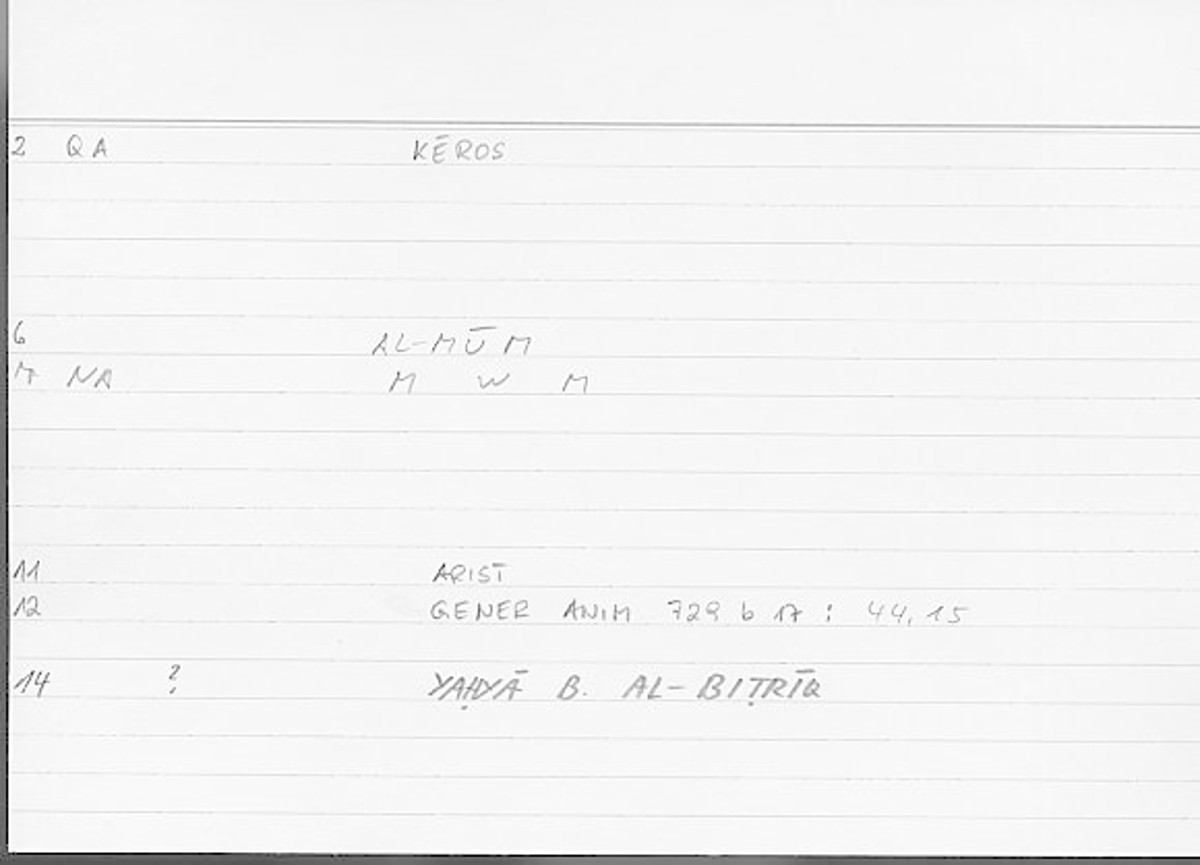 2 QA KĒROS
6 AL-MŪM
7 NA M W M
11 ARIST
12 GENER ANIM 729 b 17 : 44,15
14 ? YAḤYĀ B. AL-BIṬRĪQ